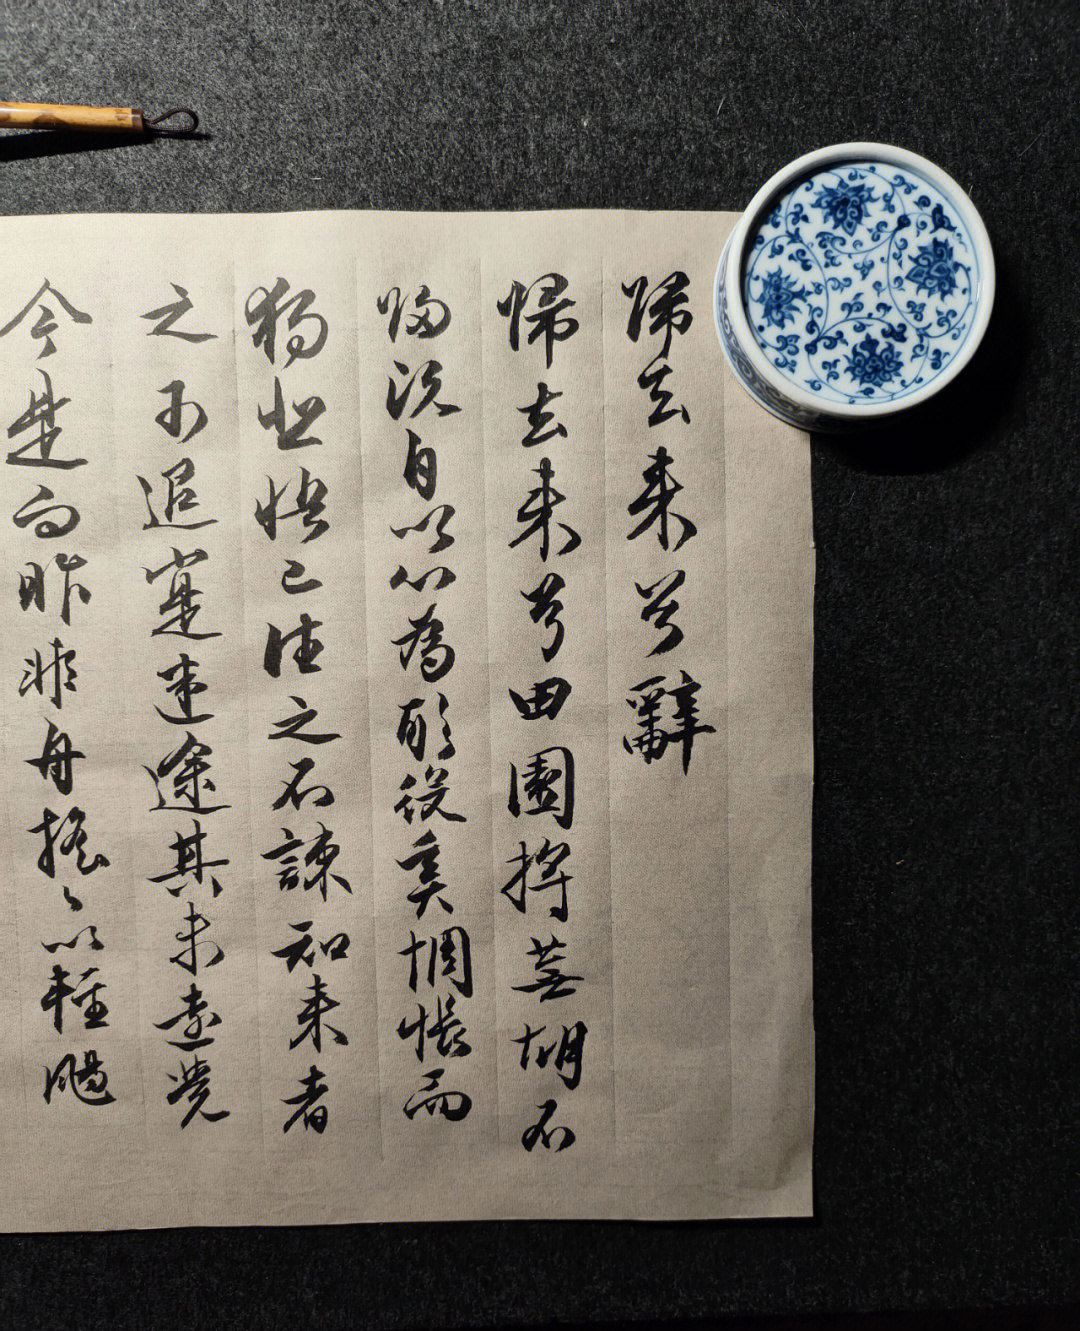 歸去来兮辭
歸去来兮田園將蕪胡不
歸既自以心為形役奚惆悵而
獨悲悟已往之不諫知来者
之可追寔迷途其未遠覺
今是而昨非舟摇々以輕颺